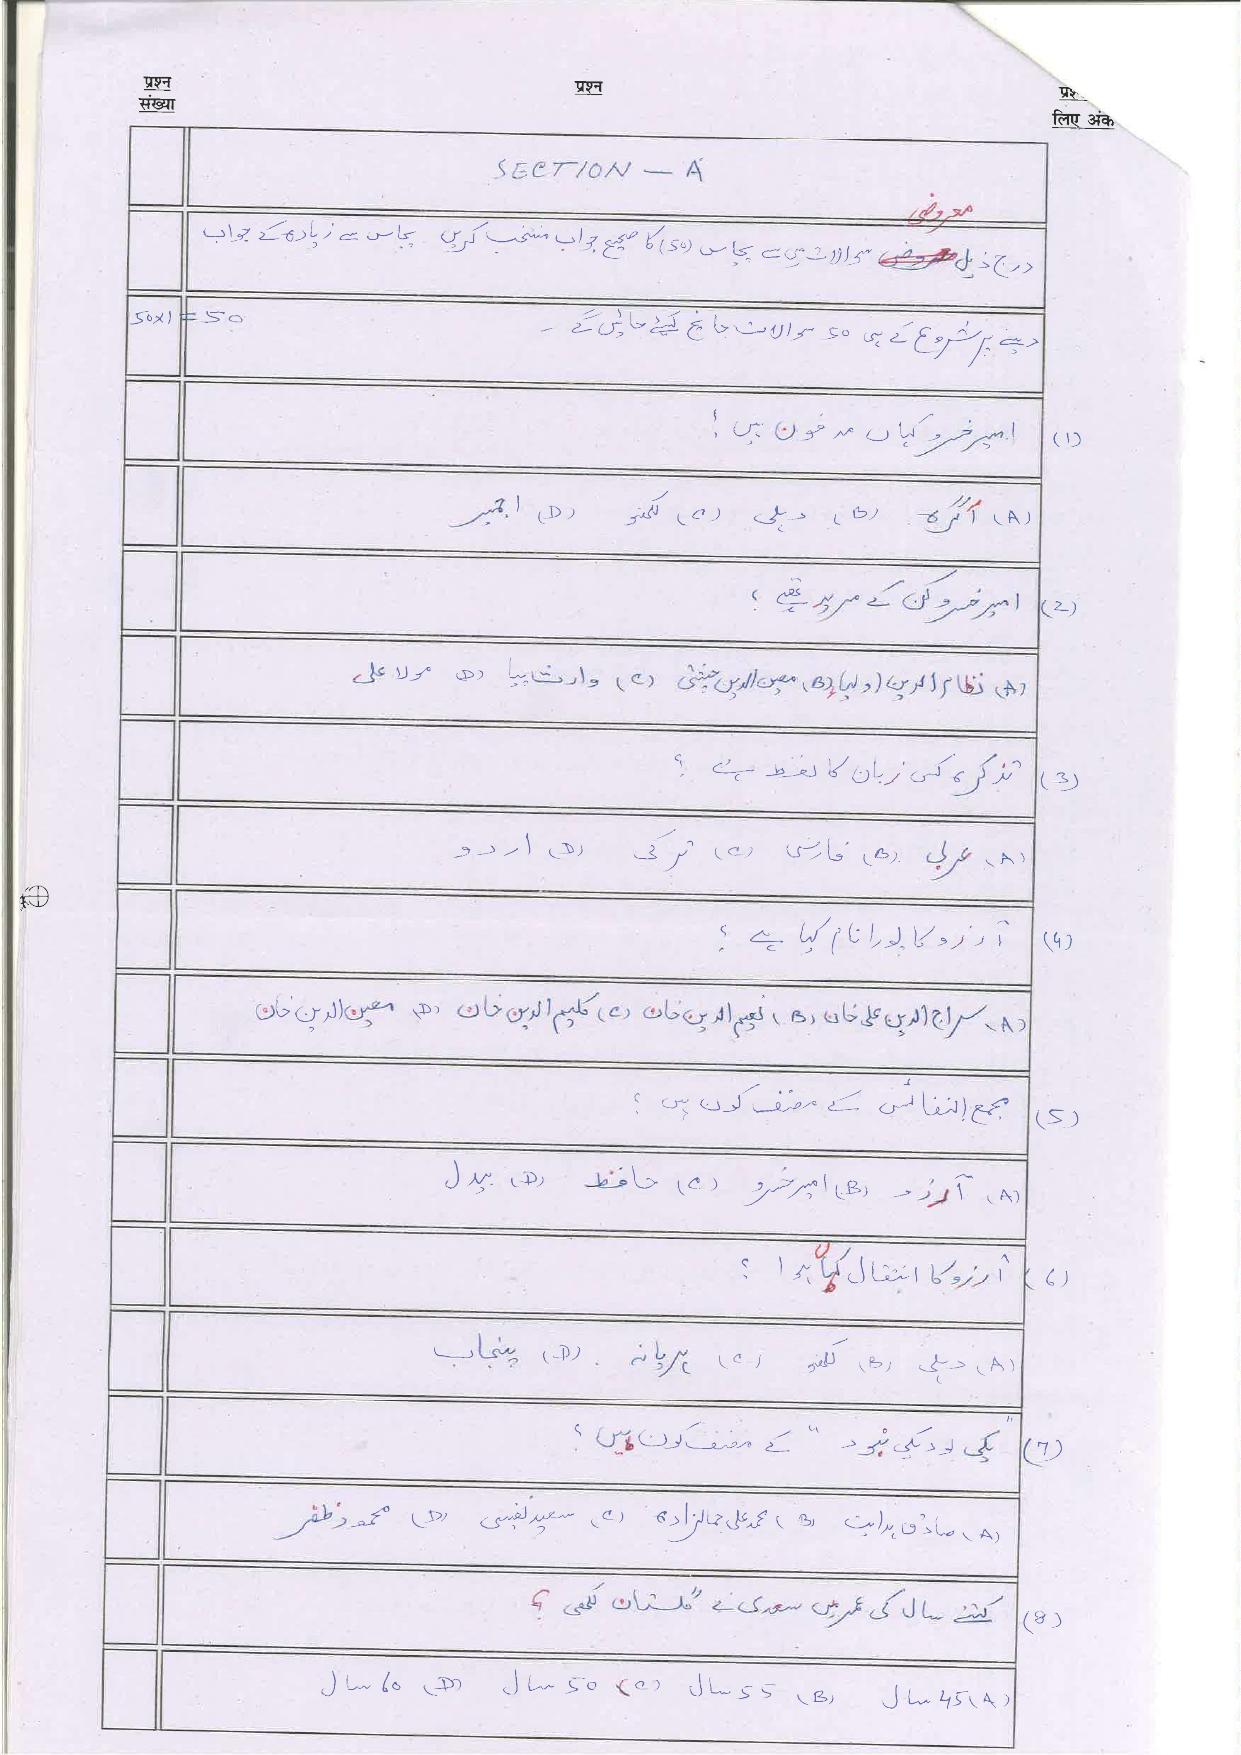 प्रश्न संख्या
प्रश्न
लिए अंक
SECTION — A
معروضی
درج ذیل سوالات میں سے پچاس (50) کا صحیح جواب منتخب کریں پچاس سے زیادہ کے جواب
دینے پر شروع کے ہی 50 سوالات جانچ کیئے جائیں گے - 50x1 = 50
(1) امیر خسرو کہاں مدفون ہیں؟
(A) آگرہ (B) دہلی (C) لکھنو (D) اجمیر
(2) امیر خسرو کن کے مرید تھے ؟
(A) نظام الدین اولیا (B) معین الدین چشتی (C) وارث پیا (D) مولا علی
(3) تذکرہ کس زبان کا لفظ ہے ؟
(A) عربی (B) فارسی (C) ترکی (D) اردو
(4) آرزو کا پورا نام کیا ہے ؟
(A) سراج الدین علی خان (B) نعیم الدین خان (C) کلیم الدین خان (D) معین الدین خان
(5) مجمع النفائس کے مصنف کون ہیں ؟
(A) آرزو (B) امیر خسرو (C) حافظ (D) بیدل
(6) آرزو کا انتقال کہاں ہوا ؟
(A) دہلی (B) لکھنو (C) ہریانہ (D) پنجاب
(7) "یکی بود یکی نبود" کے مصنف کون ہیں ؟
(A) صادق ہدایت (B) محمد علی جمالزادہ (C) سعید نفیسی (D) محمود ظفر
(8) کتنے سال کی عمر میں سعدی نے گلستان لکھی ؟
(A) 45 سال (B) 55 سال (C) 50 سال (D) 60 سال